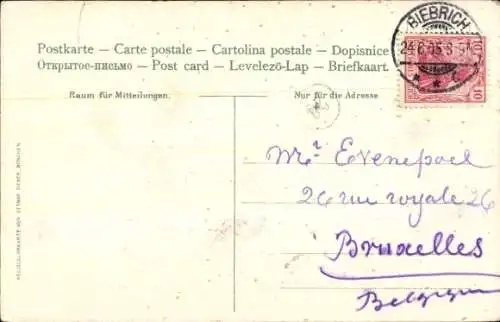 Postkarte — Carte postale — Cartolina postale — Dopisnice
Открытое-письмо — Post card — Levelező-Lap — Briefkaart.
BIEBRICH
10 10
Raum für Mitteilungen.
Nur für die Adresse
Mr Evenepoel
26 rue royale 26
Bruxelles
Belgique